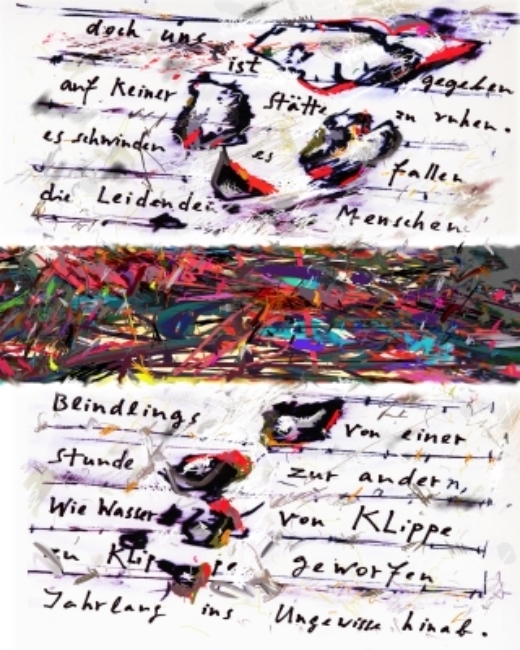 doch uns ist gegeben
auf keiner Stätte zu ruhen.
es schwinden es fallen
die Leidenden Menschen
Blindlings von einer
Stunde zur andern,
Wie Wasser von KLippe
zu Klippe geworfen
Jahrlang ins Ungewisse hinab.